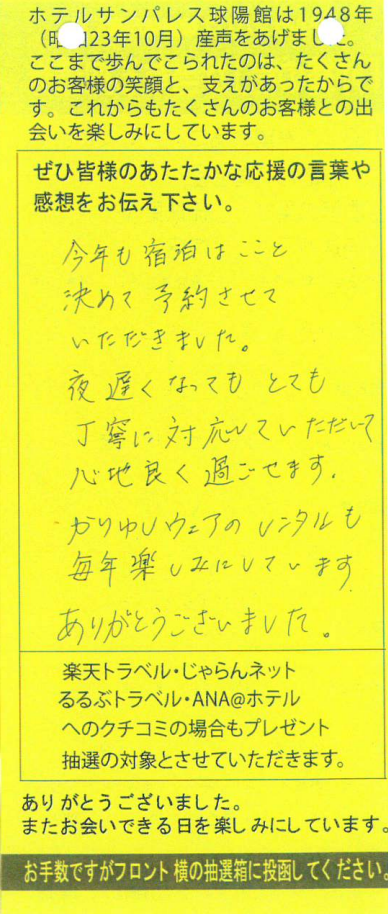 ホテルサンパレス球陽館は1948年
（昭和23年10月）産声をあげました。
ここまで歩んでこられたのは、たくさん
のお客様の笑顔と、支えがあったからで
す。これからもたくさんのお客様との出
会いを楽しみにしています。
ぜひ皆様のあたたかな応援の言葉や
感想をお伝え下さい。
今年も宿泊はここと
決めて予約させて
いただきました。
夜遅くなってもとても
丁寧に対応していただいて
心地良く過ごせます。
かりゆしウェアのレンタルも
毎年楽しみにしています
ありがとうございました。
楽天トラベル・じゃらんネット
るるぶトラベル・ANA@ホテル
へのクチコミの場合もプレゼント
抽選の対象とさせていただきます。
ありがとうございました。
またお会いできる日を楽しみにしています。
お手数ですがフロント横の抽選箱に投函してください。